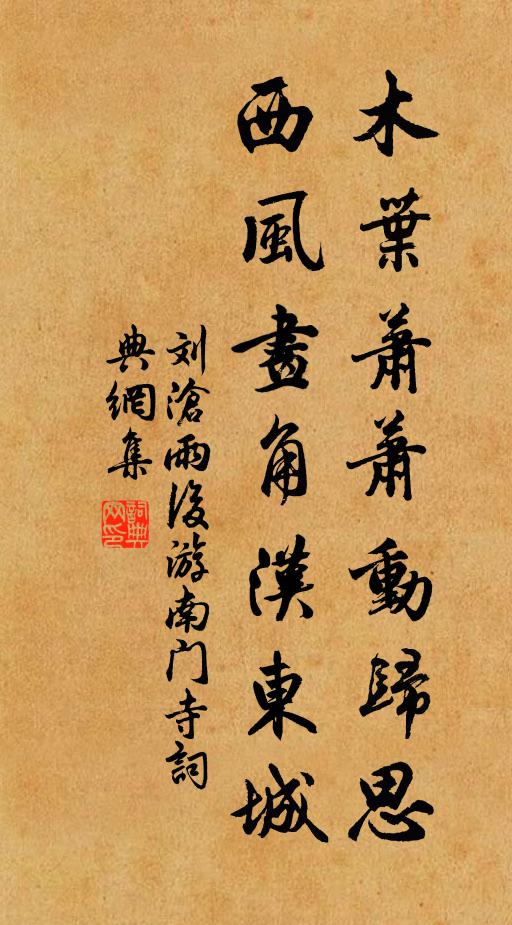 木葉蕭蕭動歸思
西風畫角漢東城
刘滄雨後游南门寺詞
典網集
詞典
网印